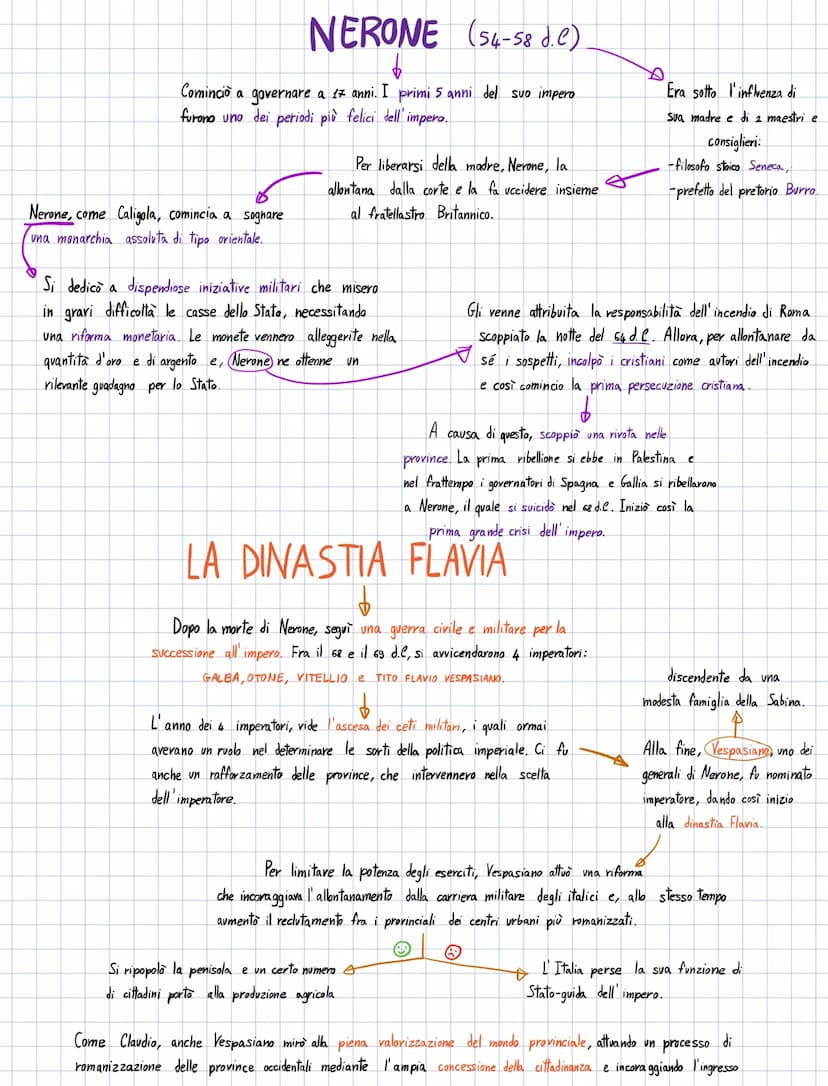 NERONE (54-58 d.C)
Cominciò a governare a 17 anni. I primi 5 anni del suo impero
furono uno dei periodi più felici dell'impero.
Era sotto l'influenza di
sua madre e di 2 maestri e
consiglieri:
-filosofo stoico Seneca,
-prefetto del pretorio Burro.
Per liberarsi della madre, Nerone, la
allontana dalla corte e la fa uccidere insieme
al fratellastro Britannico.
Nerone, come Caligola, comincia a sognare
una monarchia assoluta di tipo orientale.
Si dedicò a dispendiose iniziative militari che misero
in gravi difficoltà le casse dello Stato, necessitando
una riforma monetaria. Le monete vennero alleggerite nella
quantità d'oro e di argento e, Nerone ne ottenne un
rilevante guadagno per lo Stato.
Gli venne attribuita la responsabilità dell'incendio di Roma
scoppiato la notte del 64 d.C. Allora, per allontanare da
sé i sospetti, incolpò i cristiani come autori dell'incendio
e così comincio la prima persecuzione cristiana.
A causa di questo, scoppiò una rivota nelle
province. La prima ribellione si ebbe in Palestina e
nel frattempo i governatori di Spagna e Gallia si ribellarono
a Nerone, il quale si suicidò nel 68 d.C. Iniziò così la
prima grande crisi dell'impero.
LA DINASTIA FLAVIA
Dopo la morte di Nerone, seguì una guerra civile e militare per la
successione all'impero. Fra il 68 e il 69 d.C, si avvicendarono 4 imperatori:
GALBA, OTONE, VITELLIO e TITO FLAVIO VESPASIANO.
L'anno dei 4 imperatori, vide l'ascesa dei ceti militari, i quali ormai
averano un ruolo nel determinare le sorti della politica imperiale. Ci fu
anche un rafforzamento delle province, che intervennero nella scelta
dell'imperatore.
discendente da una
modesta famiglia della Sabina.
Alla fine, Vespasiano, uno dei
generali di Nerone, fu nominato
imperatore, dando così inizio
alla dinastia Flavia.
Per limitare la potenza degli eserciti, Vespasiano attuò una riforma
che incoraggiava l'allontanamento dalla carriera militare degli italici e, allo stesso tempo
aumentò il reclutamento fra i provinciali dei centri urbani più romanizzati.
Si ripopolò la penisola e un certo numero
di cittadini portò alla produzione agricola
L'Italia perse la sua funzione di
Stato-guida dell'impero.
Come Claudio, anche Vespasiano mirò alla piena valorizzazione del mondo provinciale, attuando un processo di
romanizzazione delle province occidentali mediante l'ampia concessione della cittadinanza e incoraggiando l'ingresso